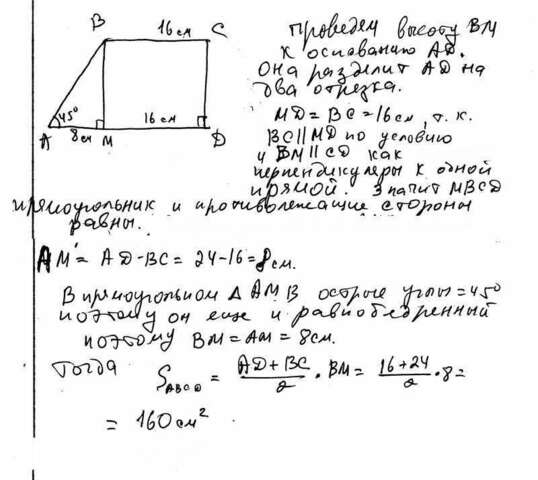 B 16см C
Проведём высоту BM
к основанию AD.
Она разделит AD на
два отрезка.
A 45° 8см M 16 см D
MD = BC = 16см, т.к.
BC ∥ MD по условию
и BM ∥ CD как
перпендикуляры к одной
прямой. Значит MBCD
прямоугольник и противолежащие стороны
равны.
AM = AD - BC = 24 - 16 = 8 см.
В прямоугольном Δ AMB острые углы = 45°
поэтому он еще и равнобедренный
поэтому BM = AM = 8см.
Тогда S ABCD = (AD + BC)/2 · BM = (16 + 24)/2 · 8 =
= 160 см²